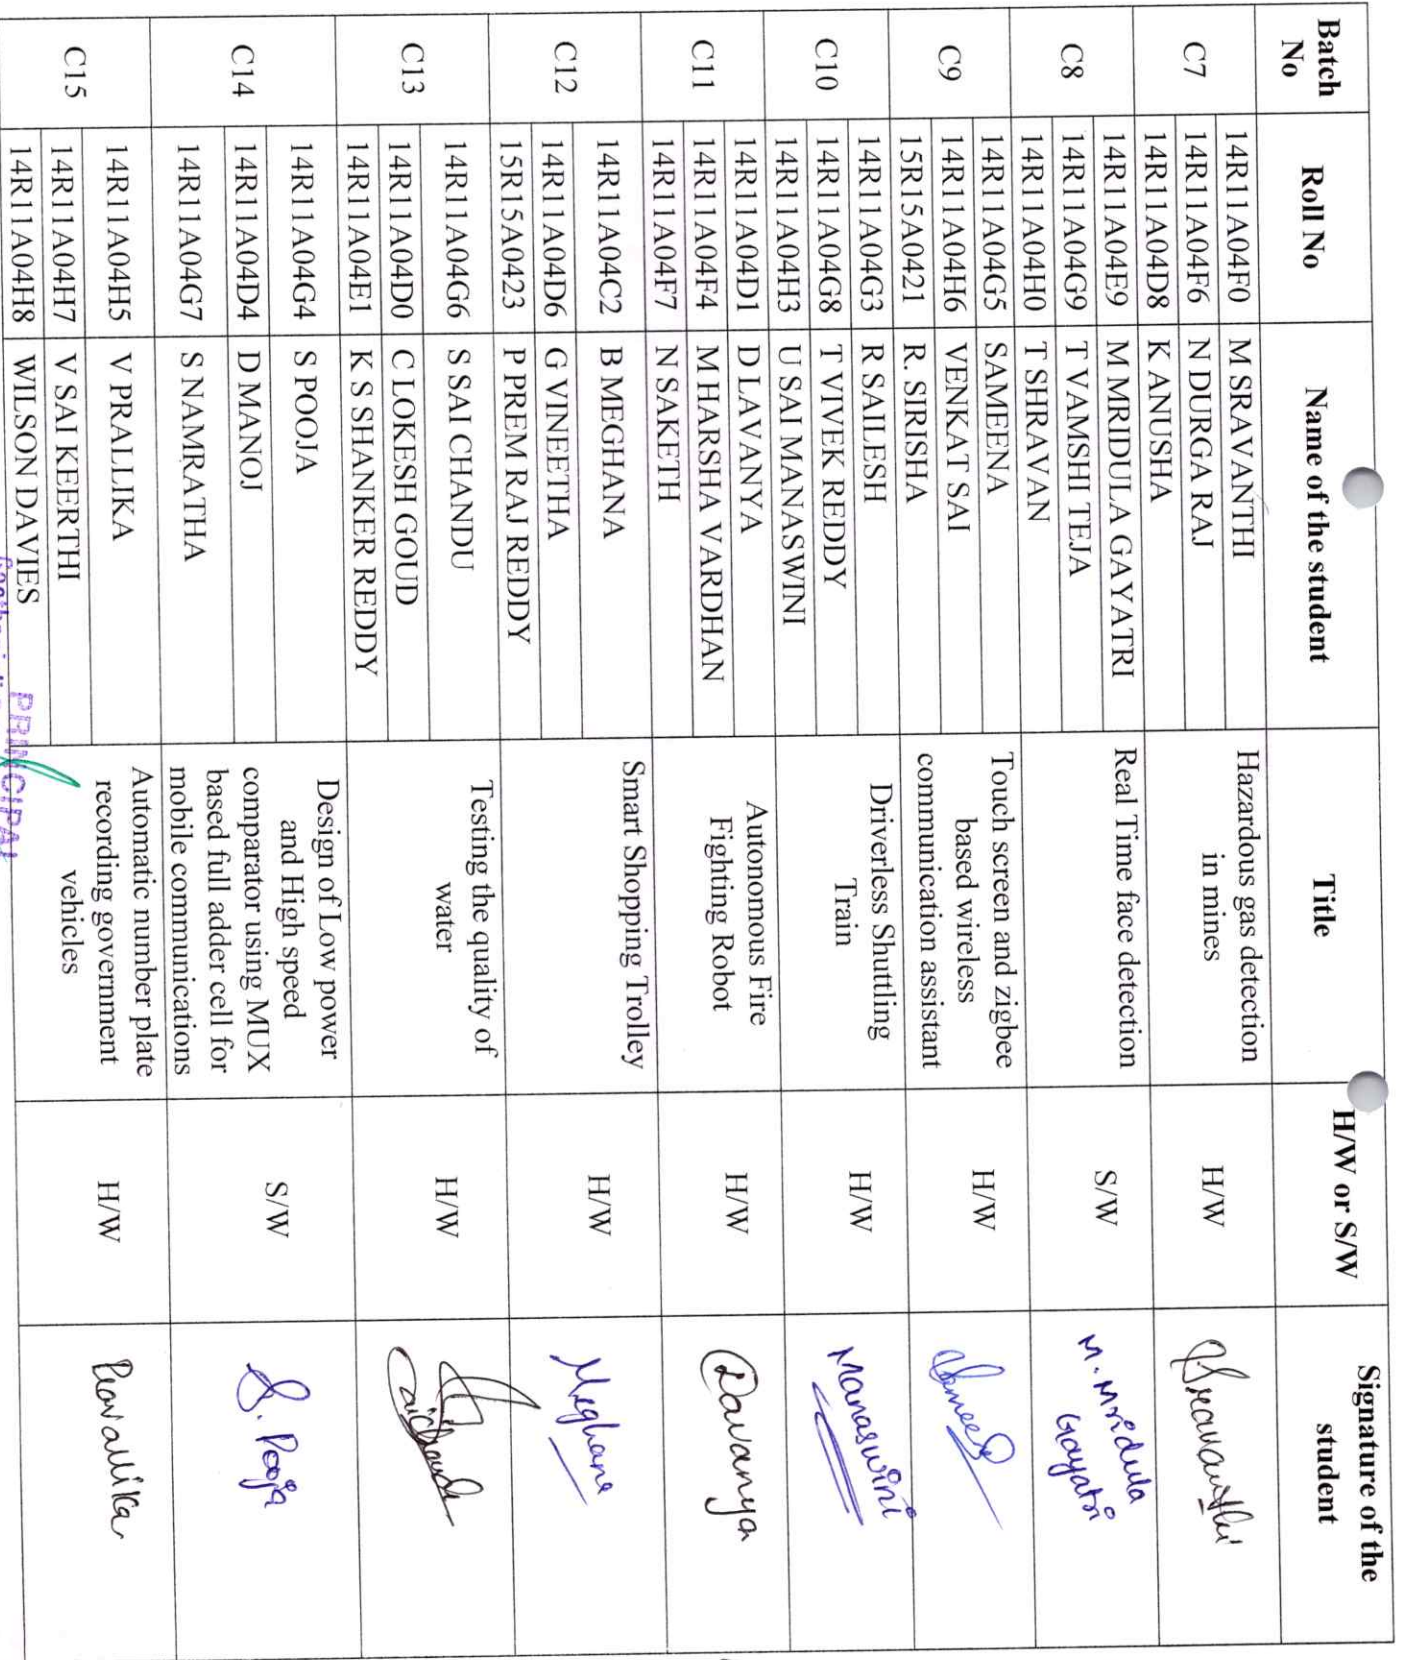 Batch No | Roll No | Name of the student | Title | H/W or S/W | Signature of the student
C7 | 14R11A04F0 | M SRAVANTHI | Hazardous gas detection in mines | H/W | Sravanthi
14R11A04F6 | N DURGA RAJ
14R11A04D8 | K ANUSHA
C8 | 14R11A04E9 | M MRIDULA GAYATRI | Real Time face detection | S/W | M. Mridula Gayatri
14R11A04G9 | T VAMSHI TEJA
14R11A04H0 | T SHRAVAN
C9 | 14R11A04G5 | SAMEENA | Touch screen and zigbee based wireless communication assistant | H/W
14R11A04H6 | VENKAT SAI
15R15A0421 | R. SIRISHA
C10 | 14R11A04G3 | R SAILESH | Driverless Shuttling Train | H/W | Manaswini
14R11A04G8 | T VIVEK REDDY
14R11A04H3 | U SAI MANASWINI
C11 | 14R11A04D1 | D LAVANYA | Autonomous Fire Fighting Robot | H/W | Lavanya
14R11A04F4 | M HARSHA VARDHAN
14R11A04F7 | N SAKETH
C12 | 14R11A04C2 | B MEGHANA | Smart Shopping Trolley | H/W | Meghana
14R11A04D6 | G VINEETHA
15R15A0423 | P PREM RAJ REDDY
C13 | 14R11A04G6 | S SAI CHANDU | Testing the quality of water | H/W
14R11A04D0 | C LOKESH GOUD
14R11A04E1 | K S SHANKER REDDY
C14 | 14R11A04G4 | S POOJA | Design of Low power and High speed comparator using MUX based full adder cell for mobile communications | S/W | S. Pooja
14R11A04D4 | D MANOJ
14R11A04G7 | S NAMRATHA
C15 | 14R11A04H5 | V PRALLIKA | Automatic number plate recording government vehicles | H/W | Pravallika
14R11A04H7 | V SAI KEERTHI
14R11A04H8 | WILSON DAVIES
PRINCIPAL